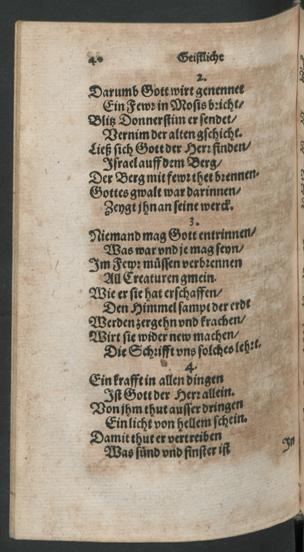 4. Geistliche
2.
Darumb Gott wirt genennet
Ein Fewr in Mosis bricht/
Blitz Donnerstim er sendet/
Vernim der alten gschicht.
Ließ sich Gott der Herr finden/
Israel auff dem Berg/
Der Berg mit fewr thet brennen/
Gottes gwalt war darinnen/
Zeygt jhn an seine werck.
3.
Niemand mag Gott entrinnen/
Was war vnd je mag seyn/
Jm Fewr müssen verbrennen
All Creaturen gmein.
Wie er sie hat erschaffen/
Den Himmel sampt der erdt
Werden zergehn vnd krachen/
Wirt sie wider new machen/
Die Schrifft vns solches lehrt.
4.
Ein krafft in allen dingen
Ist Gott der Herr allein.
Von jhm thut ausser dringen
Ein licht von hellem schein.
Damit thut er vertreiben
Was sünd vnd finster ist